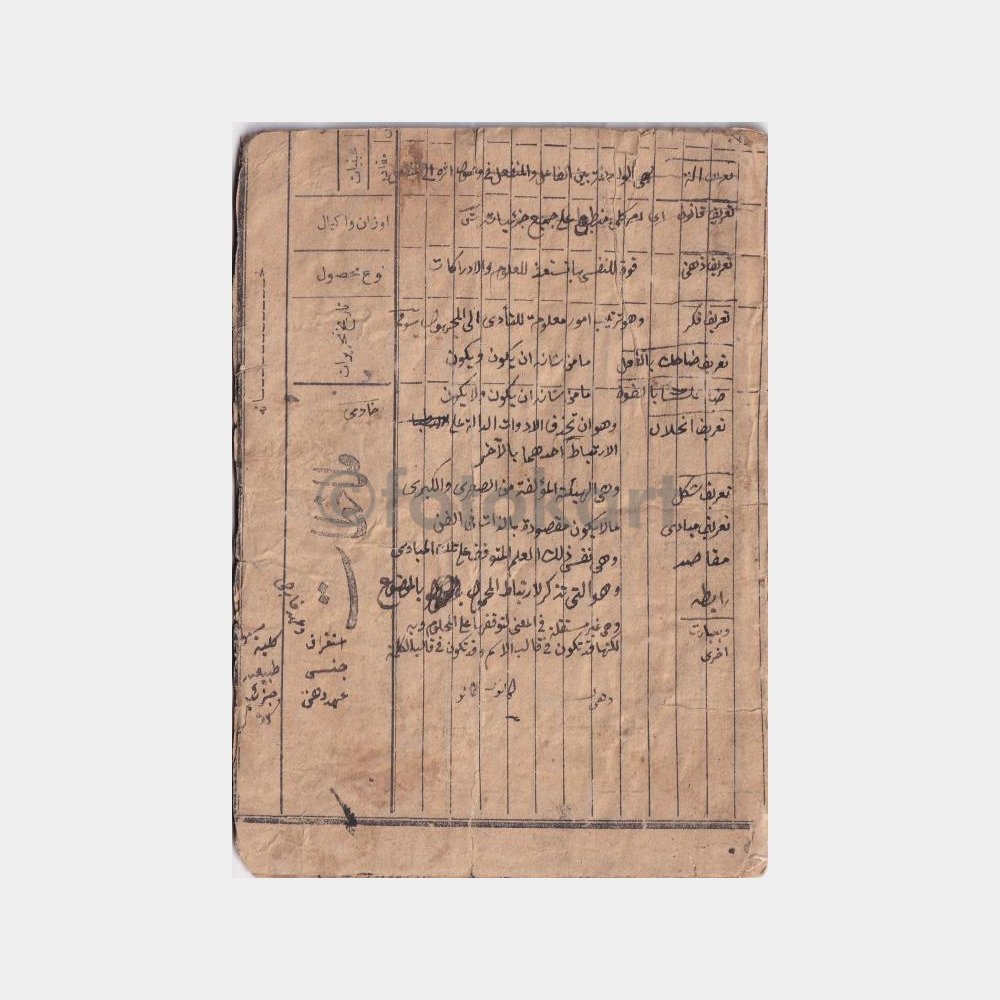 تعريف الة فهى الواسطة بين الفاعل والمنفعل فى وصول اثره الى المنفعل
تعريف قانون امر كلى منطبع على جميع جزئيات شتى
تعريف ذهنى قوة للنفس بها تستعد للعلوم والادراكات
تعريف فكر وهو ترتيب امور معلومة للتأدى الى المجهول
تعريف ضاحك بالفعل مامن شانه ان يكون ويكون
ضاحك بالقوة مامن شانه ان يكون ولا يكون
تعريف انحلال وهو ان تحذف الادوات الدالة على
الارتباط احدهما بالآخر
تعريف شكل وهى الهيئة المؤلفة من الصغرى والكبرى
تعريف مبادى مالا يكون مقصودة بالذات فى الفن
مقاصد وهى نفس ذلك العلم المتوقف على تلك المبادى
رابطه وهو التى تذكر لارتباط المحمول بالموضوع
وبعبارت وهى غير مستقلة فى المعنى لتوقفها على المحكوم وبه
اخرى لكنها قد تكون فى قالب الاسم وقد تكون فى قالب الكلمة
وهى
اوزان واكيال
نوع محصول
تاريخ تحريرات
خادمى
استغراق
جنسى
عهد ذهنى
عهد خارجى
كلية
طبيعيه
جزئيه
fotokart